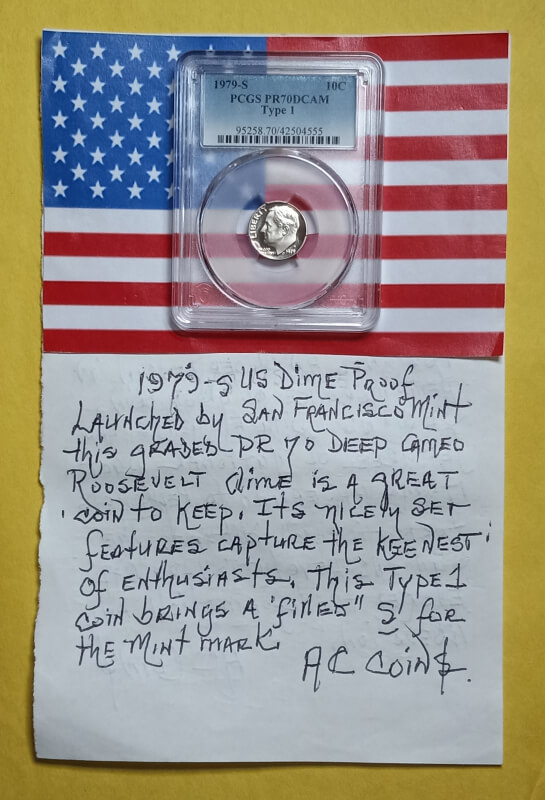 1979-S 10C
PCGS PR70DCAM
Type 1
95258.70/42504555
LIBERTY
1979-S US Dime Proof
LAUNCHED by SAN FRANCISCO MINT
this GRADED PR 70 DEEP CAMEO
ROOSEVELT dime is A GREAT
coin to KEEP. Its nicely SET
FEATURES CAPTURE the KEENEST
of ENTHUSIASTS. This Type 1
coin brings A "filled" S for
the Mint MARK.
AC COIN$.